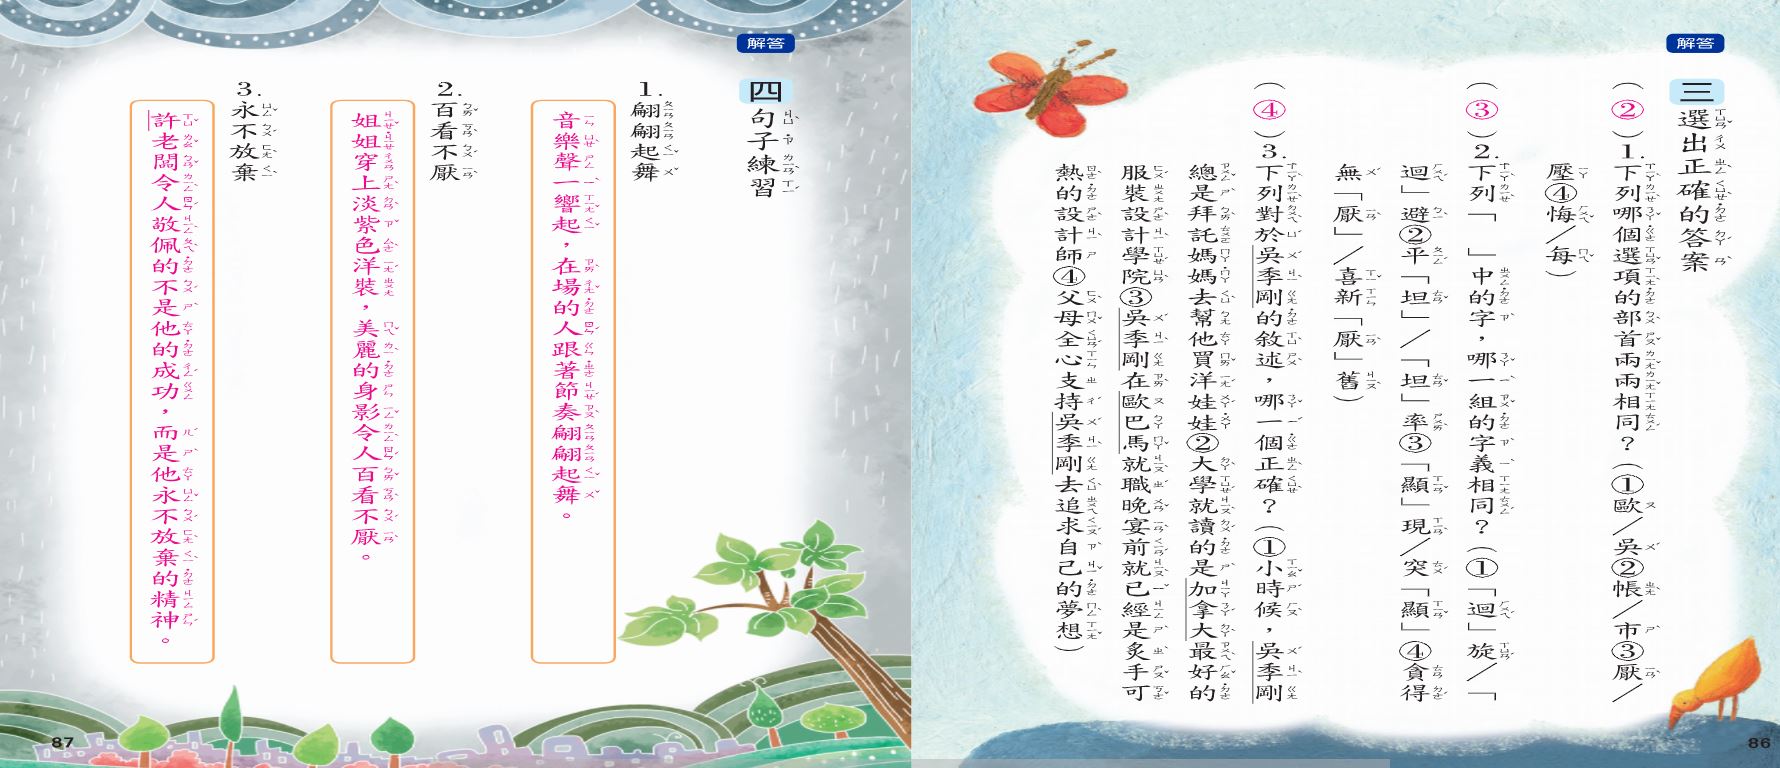 解答
三 選出正確的答案
(②)1.下列哪個選項的部首兩兩相同?(①歐/吳②帳/市③厭/
壓④悔/每)
(③)2.下列「 」中的字,哪一組的字義相同?(①「迴」旋/「
迴」避②平「坦」/「坦」率③「顯」現/突「顯」④貪得
無「厭」/喜新「厭」舊)
(④)3.下列對於吳季剛的敘述,哪一個正確?(①小時候,吳季剛
總是拜託媽媽去幫他買洋娃娃②大學就讀的是加拿大最好的
服裝設計學院③吳季剛在歐巴馬就職晚宴前就已經是炙手可
熱的設計師④父母全心支持吳季剛去追求自己的夢想)
86
解答
四 句子練習
1.翩翩起舞
音樂聲一響起,在場的人跟著節奏翩翩起舞。
2.百看不厭
姐姐穿上淡紫色洋裝,美麗的身影令人百看不厭。
3.永不放棄
許老闆令人敬佩的不是他的成功,而是他永不放棄的精神。
87